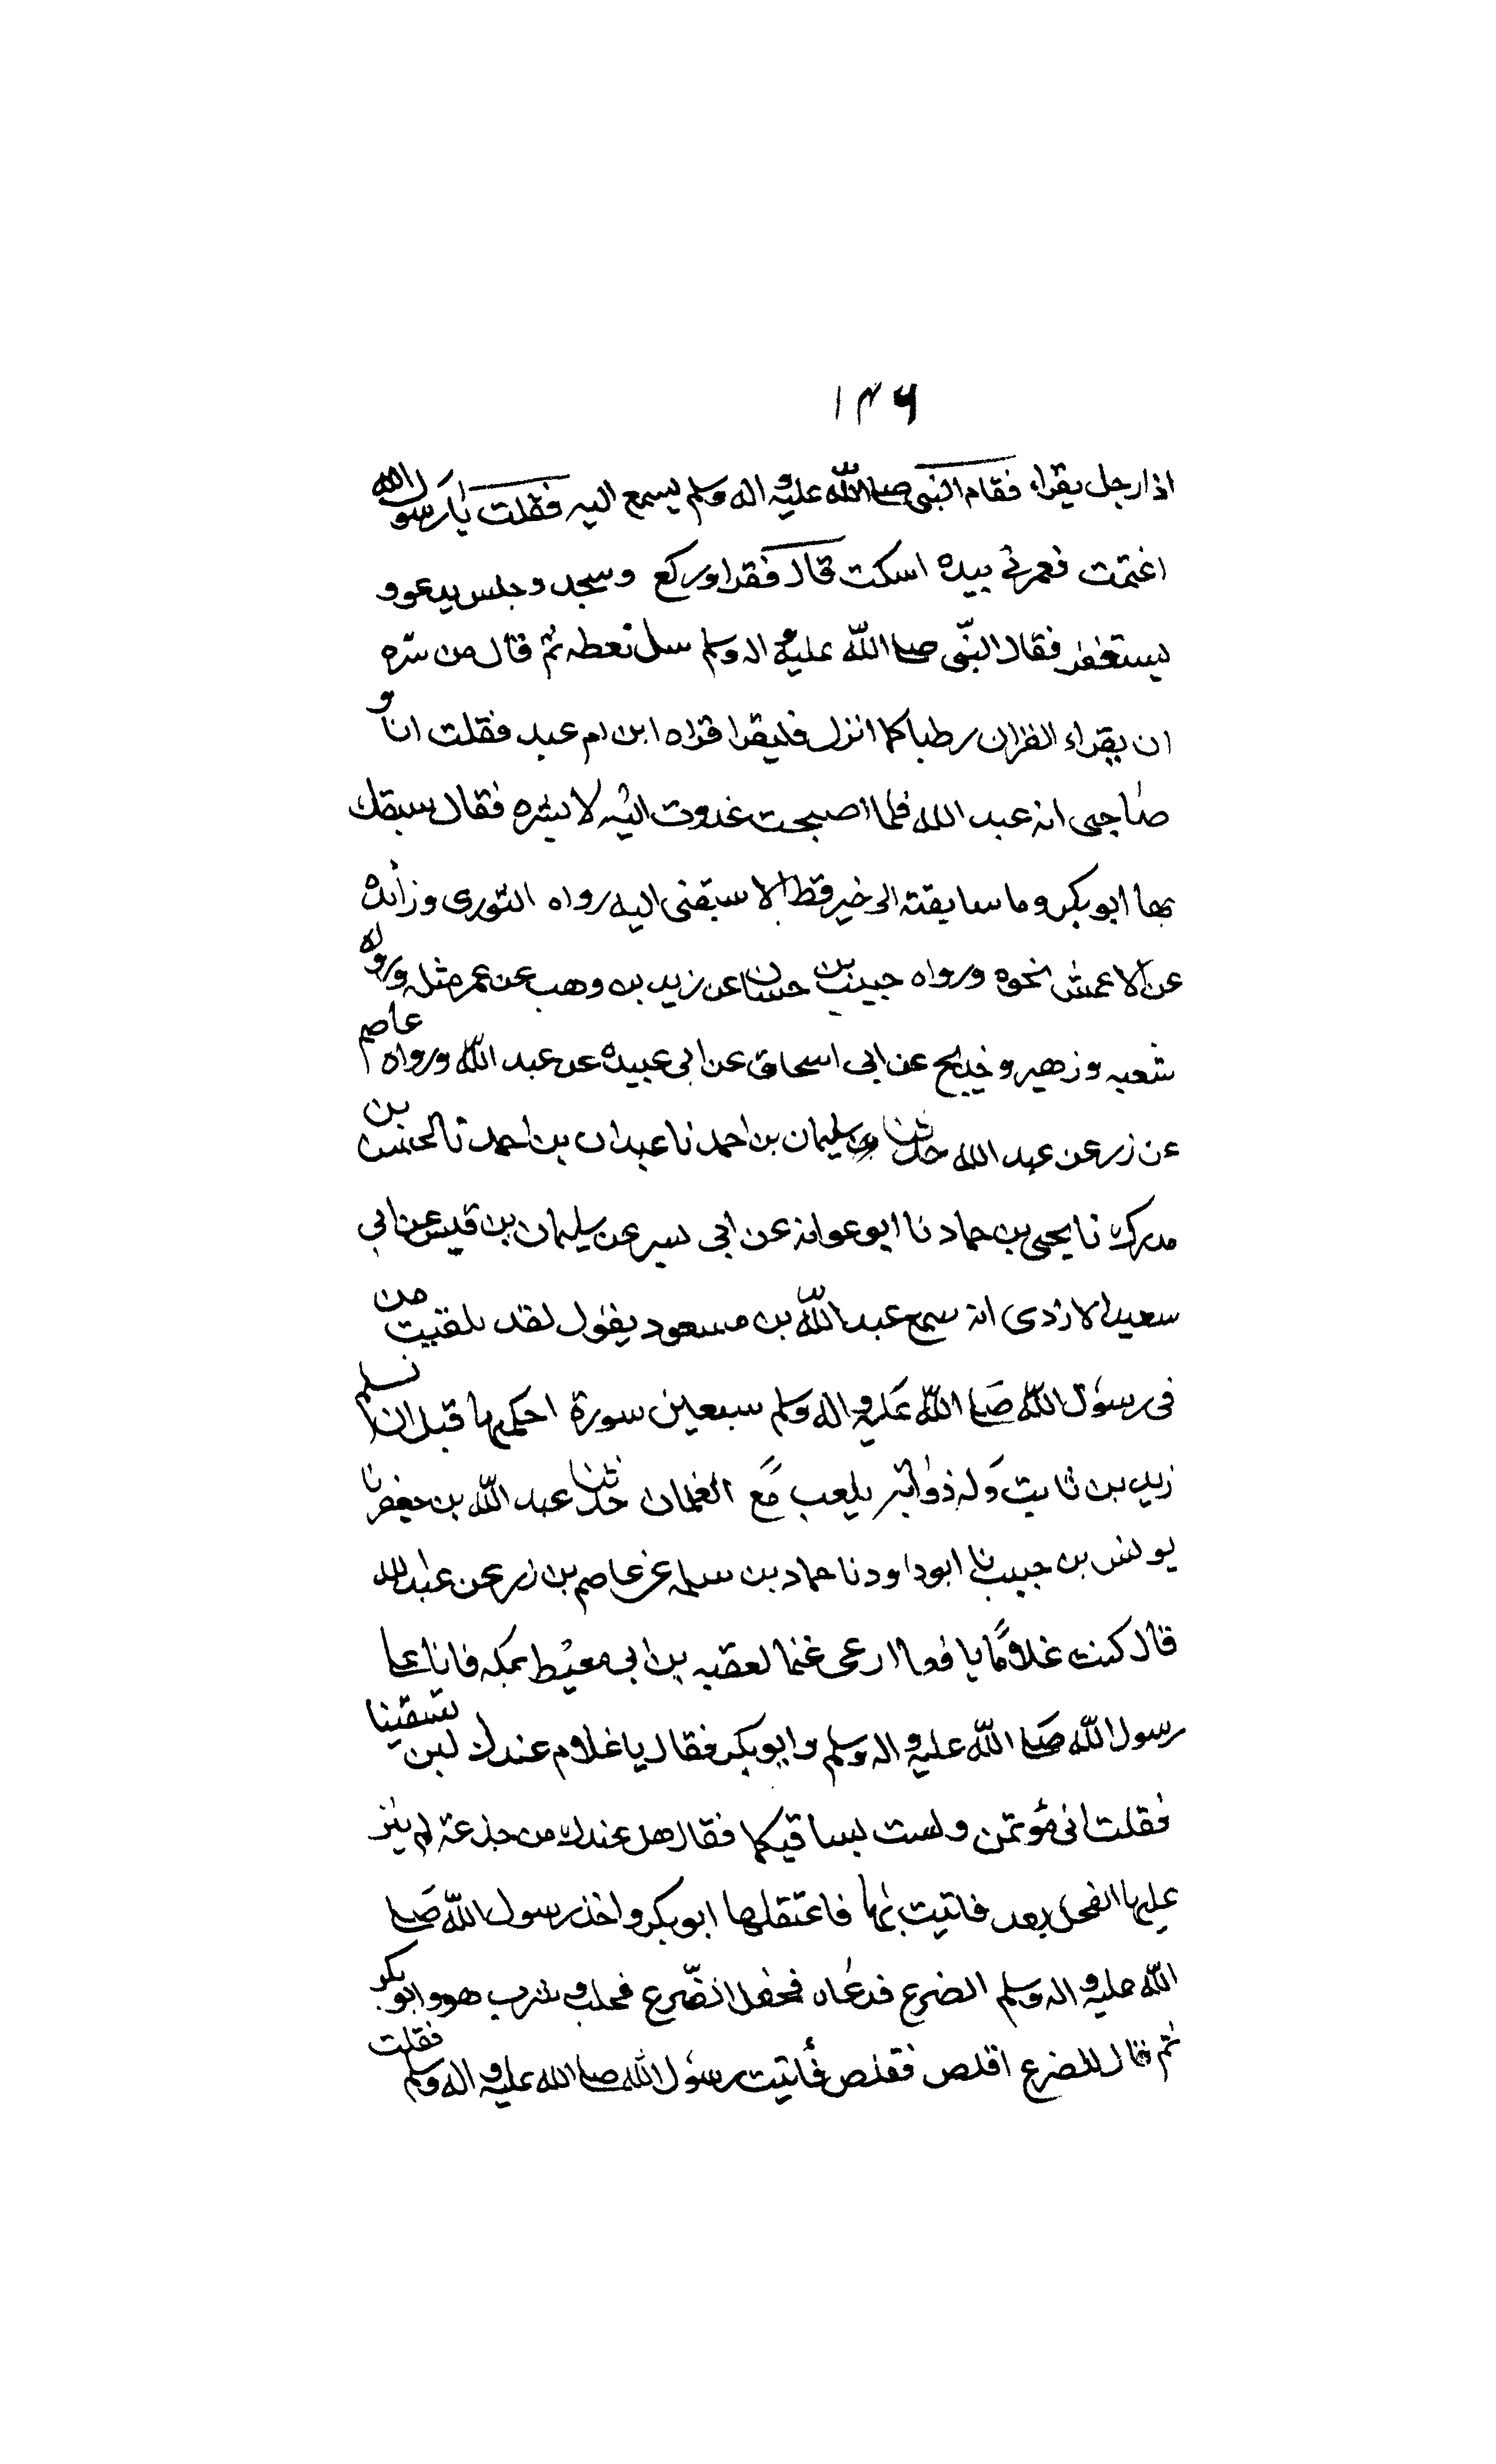 ١٣٦
اذا رجل يقراء فقام النبى صلى الله عليه و اله وسلم يسمع اليه فقلت يا رسول الله
اغتمت فغمزنى بيده اسكت قال فقرا وركع وسجد وجلس يدعو و
يستغفر فقال النّبى صلى الله عليه و اله وسلم سل تعطه ثم قال من سّره
ان يقراء القران رطبا كما انزل فليقرا قراه ابن ام عبد فقلت انا و
صاحبى انه عبد الله فلما اصبحت غدوت اليه لا بشره فقال سبقك
بها ابو بكر وما سابقته الى خير قط الا سبقنى اليه رواه الثورى وزائده
عن الاعمش نحوه ورواه حبيب بن حسان عن زيد بن وهب عن عمر مثله ورواه
شعبه وزهير و خديج عن ابى اسحاق عن ابى عبيده عن عبد الله ورواه عاصم
عن زر عن عبد الله حدثنا سليمان بن احمد نا عبدان بن احمد نا الحسن بن
مدرك نا يحيى بن حماد نا ابو عوانه عن ابى بسر عن سليمان بن قيس عن ابى
سعيد الازدى انه سمع عبد الله بن مسعود يقول لقد تلقيت من
فى رسول الله صلى الله عليه و اله وسلم سبعين سورة احكمها قبل ان يسلم
زيد بن ثابت وله ذوابه يلعب مع الغلمان حدثنا عبد الله بن جعفر نا
يونس بن حبيب نا ابو داود نا حماد بن سلمه عن عاصم بن زر عن عبد الله
قال كنت غلامًا يافعا ارعى غنما لعقبه بن ابى معيط بمكه فاتا على
رسول الله صلى الله عليه و اله وسلم وابو بكر فقال يا غلام عندك لبن تسقينا
فقلت انى مؤتمن ولست بساقيكما فقال هل عندك من جذعة لم ينز
عليها الفحل بعد فاتيت بها فاعتقلها ابو بكر واخذ رسول الله صلى
الله عليه و اله وسلم الضرع فدعاه فحفل الضّرع فحلب و شرب هو و ابو بكر
ثم قال للضرع اقلص فقلص فأتيت رسول الله صلى الله عليه و اله وسلم فقلت